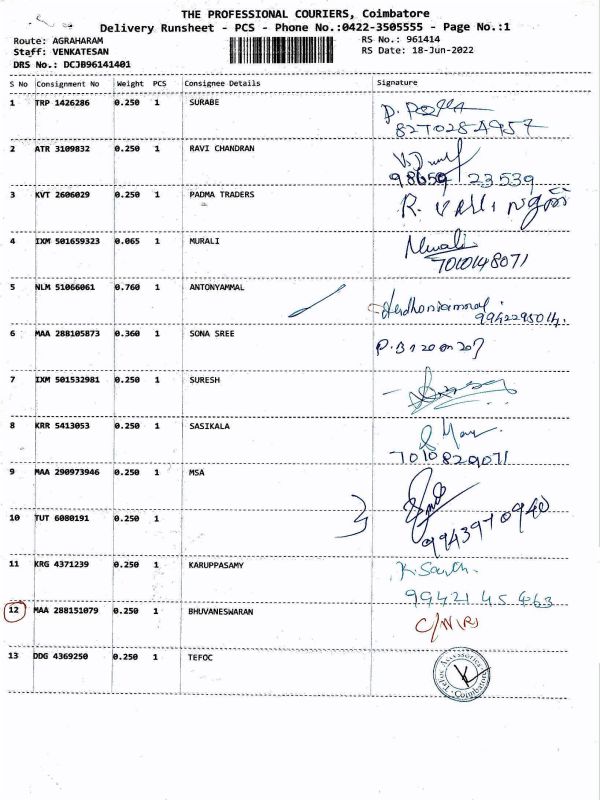 THE PROFESSIONAL COURIERS, Coimbatore
Delivery Runsheet - PCS - Phone No.:0422-3505555 - Page No.:1
Route: AGRAHARAM RS No.: 961414
Staff: VENKATESAN RS Date: 18-Jun-2022
DRS No.: DCJB96141401
S No Consignment No Weight PCS Consignee Details Signature
1 TRP 1426286 0.250 1 SURABE
2 ATR 3109832 0.250 1 RAVI CHANDRAN
98659 23539
3 KVT 2606029 0.250 1 PADMA TRADERS
4 IXM 501659323 0.065 1 MURALI Murali
7010148071
5 NLM 51066061 0.760 1 ANTONYAMMAL
9942295014.
6 MAA 288105873 0.360 1 SONA SREE
7 IXM 501532981 0.250 1 SURESH
8 KRR 5413053 0.250 1 SASIKALA
7010829071
9 MAA 290973946 0.250 1 MSA
10 TUT 6080191 0.250 1
9943970940
11 KRG 4371239 0.250 1 KARUPPASAMY
99421 45463
12 MAA 288151079 0.250 1 BHUVANESWARAN
13 DDG 4369250 0.250 1 TEFOC